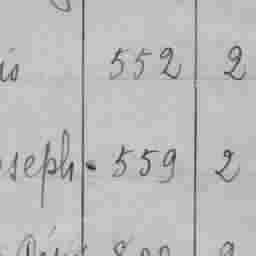 is 552 2
seph - 559 2